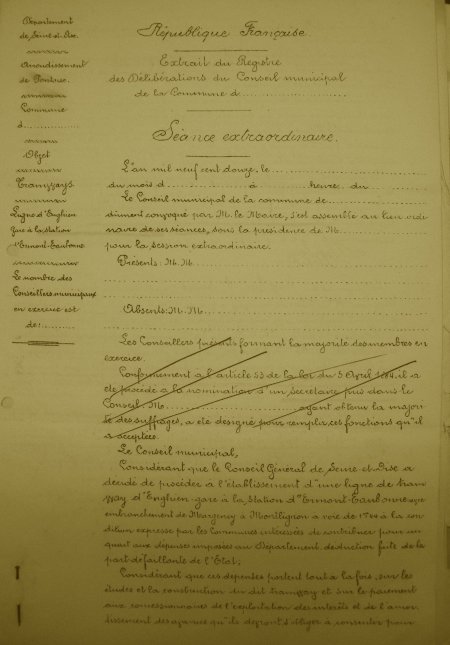 Département
de Seine-et-Oise.
Arrondissement
de Pontoise.
Commune
d
Objet
Tramways
Ligne d'Enghien
gare à la station
d'Ermont-Eaubonne
Le nombre des
Conseillers municipaux
en exercice est
de:
République Française.
Extrait du Registre
des Délibérations du Conseil municipal
de la Commune d
Séance extraordinaire.
L'an mil neuf cent douze, le
du mois d à heures du
Le Conseil municipal de la commune de
dûment convoqué par M. le Maire, s'est assemblé au lieu ordi-
naire de ses séances, sous la présidence de M.
pour la session extraordinaire.
Présents: M.M.
Absents: M.M.
Les Conseillers présents formant la majorité des membres en
exercice.
Conformément à l'article 53 de la loi du 5 Avril 1884, il a
été procédé à la nomination d'un secrétaire pris dans le
Conseil. M. ayant obtenu la majori-
té des suffrages, a été désigné pour remplir ces fonctions qu'il
a acceptées
Le Conseil municipal,
Considérant que le Conseil Général de Seine-et-Oise a
décidé de procéder à l'établissement d'une ligne de tram-
way d'Enghien-gare à la Station d'Ermont-Eaubonne avec
embranchement de Margency à Montlignon à voie de 1m44 à la con-
dition expresse par les Communes intéressées de contribuer pour un
quart aux dépenses imposées au Département, déduction faite de la
part défaillante de l'Etat;
Considérant que ces dépenses portent tout à la fois, sur les
études et la construction du dit tramway et sur le paiement
aux concessionnaires de l'exploitation des intérêts et de l'amor-
tissement des avances qu'ils devront s'obliger à consentir pour